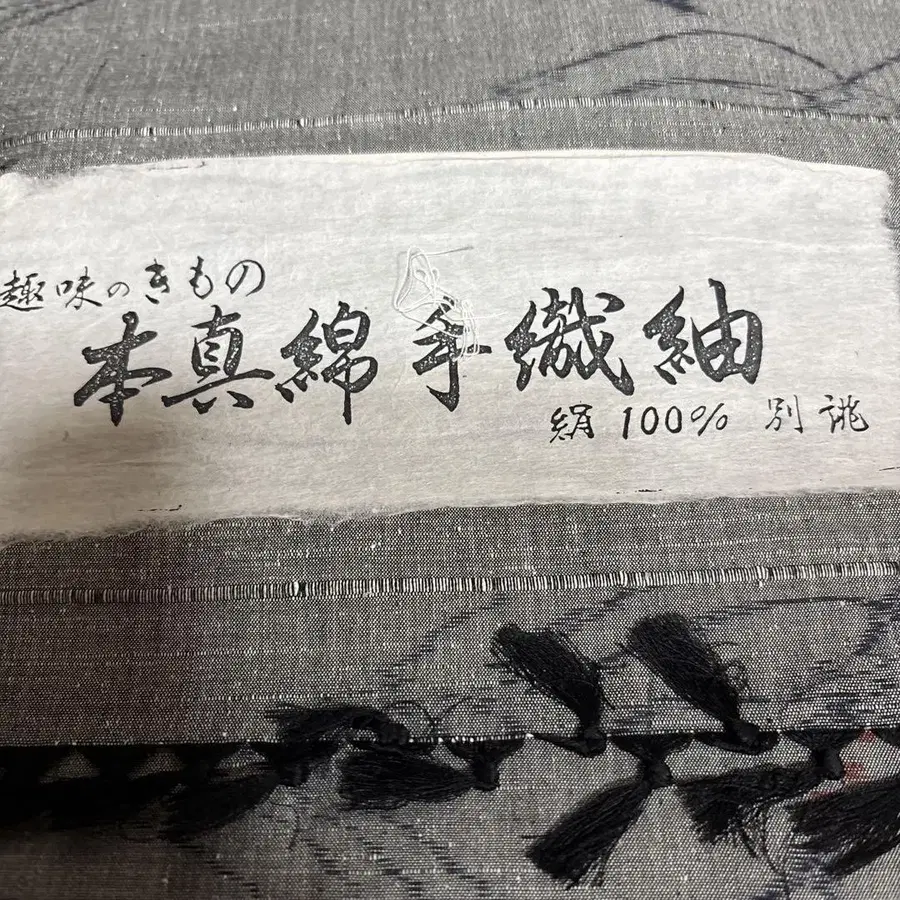 趣味のきもの
本真綿手織紬
絹100% 別誂